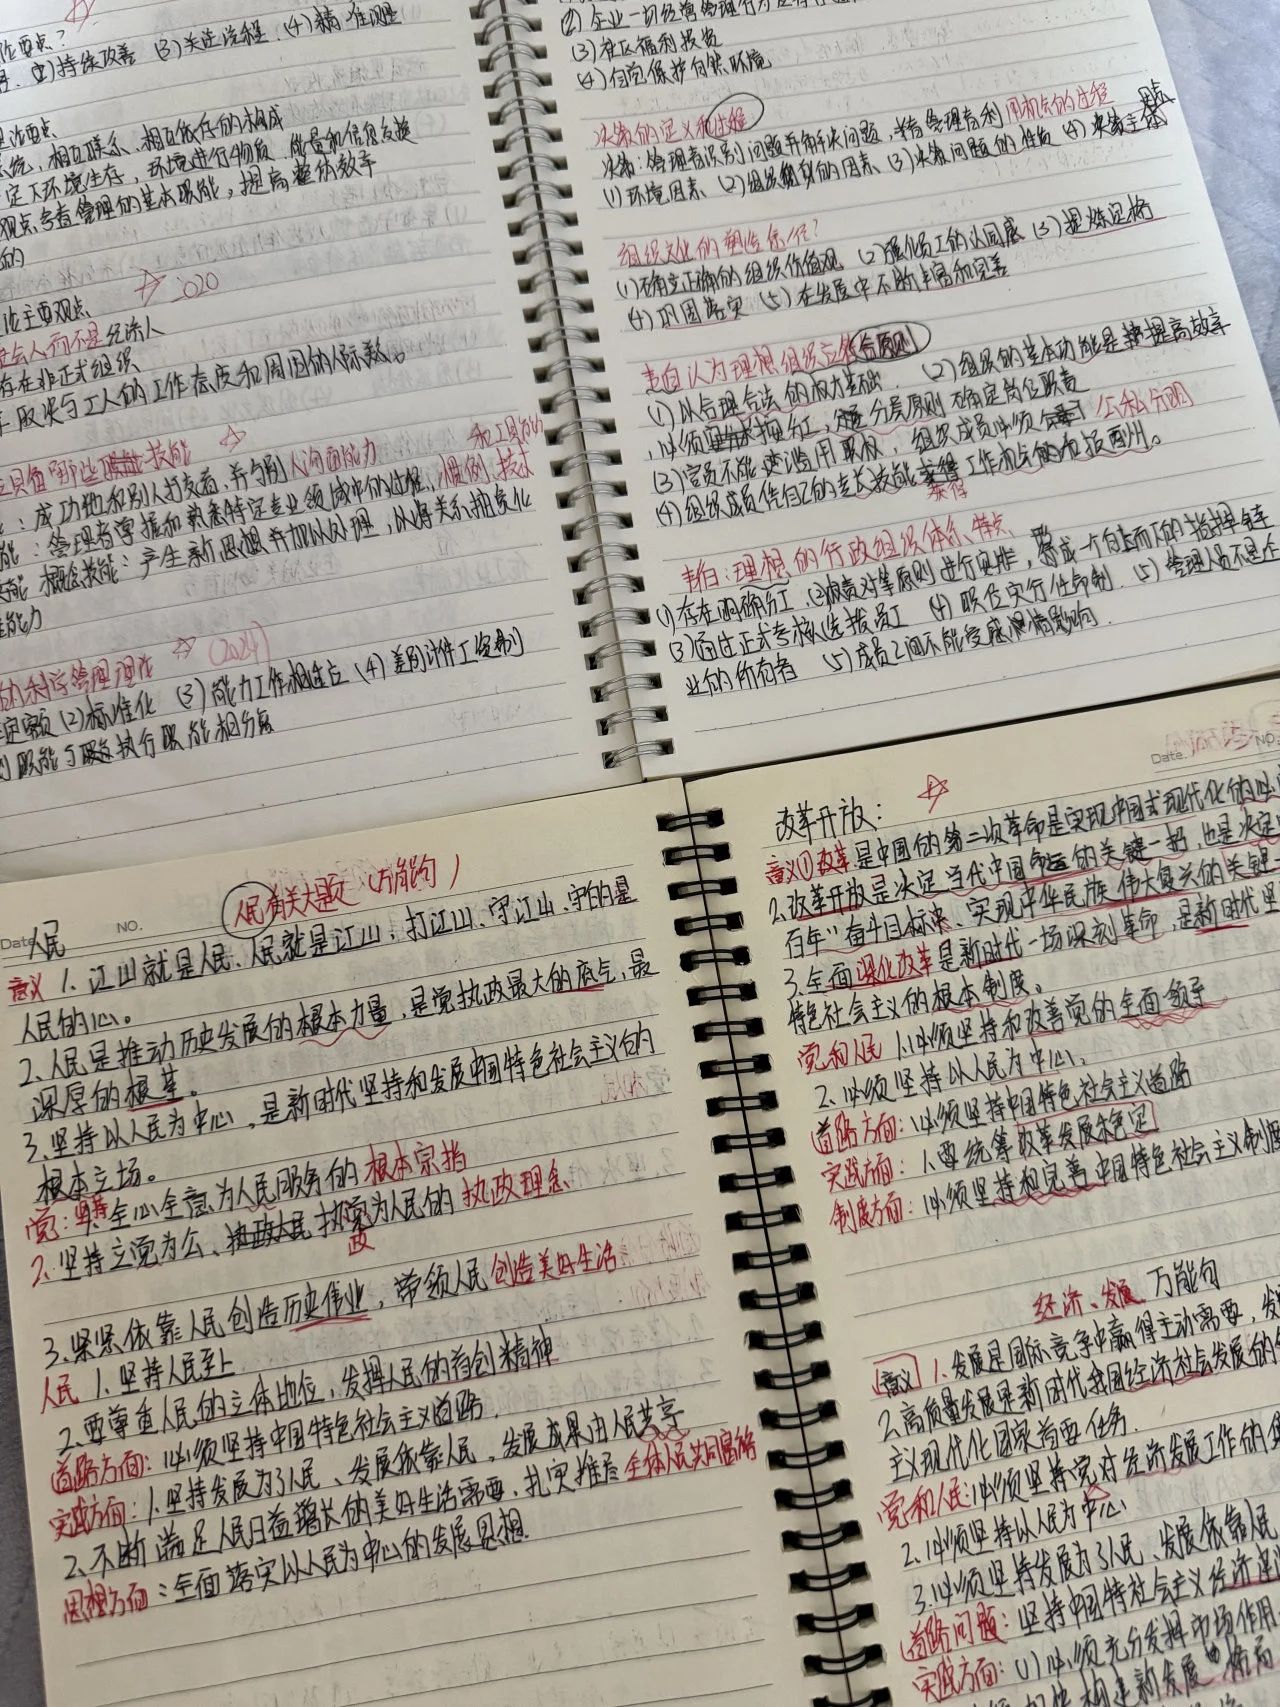 论要点?
(2)持续改善 (3)关注流程 (4)精准测量
理论要点
系统,相互联系、相互依存的构成
定下环境生存,环境进行物质、能量和信息交换
观点考查管理的基本职能,提高整体效率
的
2020
论主要观点
社会人而不是经济人
存在非正式组织
取决与工人的工作态度和周围的人际关系。
具备哪些技能
:成功地和别人打交道,并与别人沟通能力
能:管理者掌握和熟悉特定专业领域中的过程、惯例、技术和工具的
技能 概念技能:产生新思想并加以处理,以将关系抽象化
能力
的科学管理理论 (2024)
定额 (2)标准化 (3)能力工作相适应 (4)差别计件工资制
职能与执行职能相分离
(2)企业一切经营管理行为
(3)社区福利投资
(4)自觉保护自然环境
决策的定义和过程
决策:管理者识别问题并解决问题,或者管理者利用机会的过程
(1)环境因素 (2)组织自身的因素 (3)决策问题的性质 (4)决策主体
组织文化的塑造途径?
(1)确立正确的组织价值观 (2)强化员工的认同感 (3)提炼定格
(4)巩固落实 (5)在发展中不断丰富和完善
韦伯认为理想组织应符合原则
(1)以合理合法的权力基础. (2)组织的基本功能是提高效率
,必须 分工,分层原则 确定岗位职责
(3)官员不能滥用职权,组织成员必须 公私分明
(4)组织成员凭自己的专长技能获得工作机会的 报酬。
韦伯:理想的行政组织体系、特点
(1)存在明确分工 (2)权责对等原则进行安排,形成一个自上而下的指挥链
(3)通过正式考核选拔员工 (4)职位实行任命制. (5)管理人员不是企
业的所有者 (5)成员之间不能受感情影响.
人民有关大题(万能句)
Date. NO.
人民
意义 1.江山就是人民、人民就是江山,打江山、守江山、守的是
人民的心。
2.人民是推动历史发展的根本力量,是党执政最大的底气,最
深厚的根基。
3.坚持以人民为中心,是新时代坚持和发展中国特色社会主义的
根本立场。
党:坚持 1.全心全意为人民服务的根本宗指
2.坚持立党为公、执政为人民的执政理念
3.紧紧依靠人民创造历史伟业,带领人民创造美好生活
人民 1.坚持人民至上
2.要尊重人民的主体地位,发挥人民的首创精神
道路方面:必须坚持中国特色社会主义道路.
实践方面:1.坚持发展为了人民、发展依靠人民,发展成果由人民共享
2.不断满足人民日益增长的美好生活需要,扎实推进全体人民共同富裕
思想方面:全面落实以人民为中心的发展思想.
Date. NO.
改革开放:
意义①改革是中国的第二次革命是实现中国式现代化的必
2.改革开放是决定当代中国命运的关键一招,也是决定
百年"奋斗目标、实现中华民族伟大复兴的关键一
3.全面深化改革是新时代一场深刻革命,是新时代坚
特色社会主义的根本制度。
党和人民 1.必须坚持和改善党的全面领导
2.必须坚持以人民为中心.
道路方面:必须坚持中国特色社会主义道路
实践方面:1.要统筹改革发展稳定
制度方面:必须坚持和完善中国特色社会主义制度
经济、发展 万能句
意义 1.发展是国际竞争中赢得主动需要,发
2.高质量发展是新时代我国经济社会发展的
主义现代化国家首要任务.
党和人民:必须坚持党对经济发展工作的
2.必须坚持以人民为中心
3.必须坚持发展为了人民、发展依靠人民
道路问题:坚持中国特社会主义经济
实践方面:(1)必须充分发挥市场作用
构建新发展格局